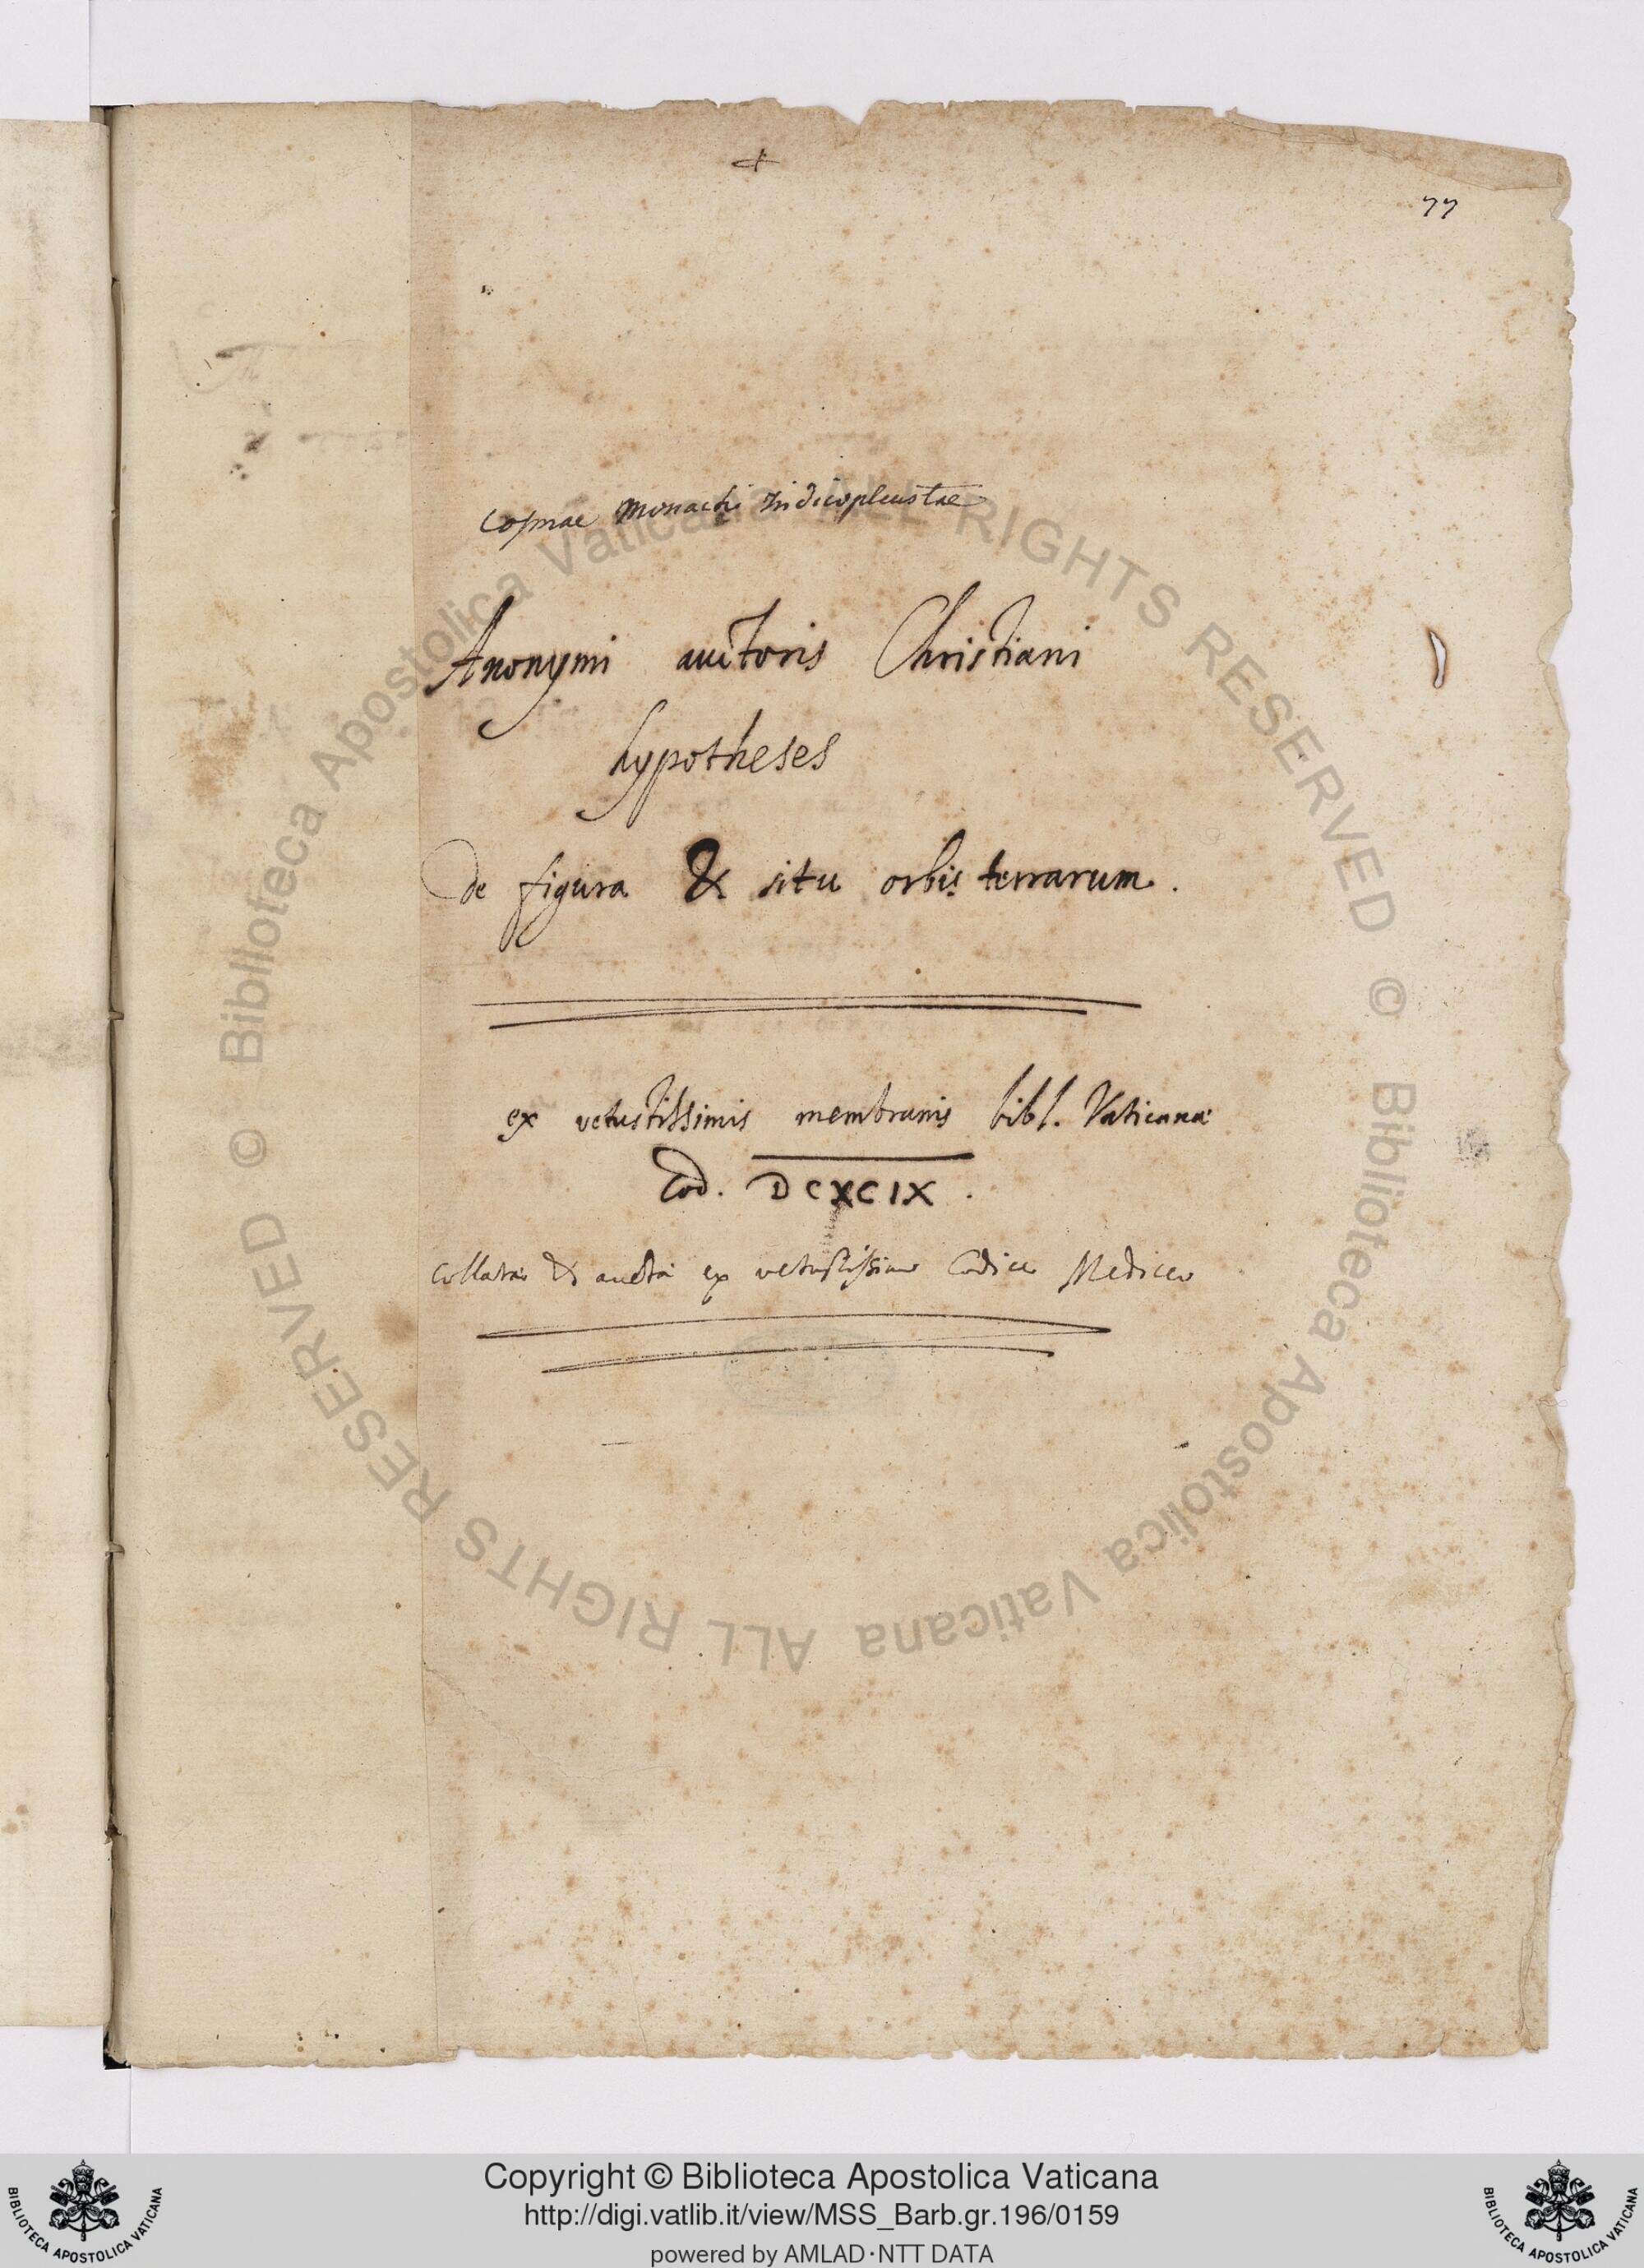 77
Cosmae Monachi Indicopleustae
Anonymi auctoris Christiani
hypotheses
De figura & situ orbis terrarum.
ex vetustissimis membranis bibl. Vaticanæ
Cod. DCXCIX.
collata & aucta ex vetustissimo Codice Mediceo
© Biblioteca Apostolica Vaticana ALL RIGHTS RESERVED © Biblioteca Apostolica Vaticana ALL RIGHTS RESERVED
Copyright © Biblioteca Apostolica Vaticana
http://digi.vatlib.it/view/MSS_Barb.gr.196/0159
powered by AMLAD·NTT DATA
BIBLIOTECA APOSTOLICA VATICANA
BIBLIOTECA APOSTOLICA VATICANA